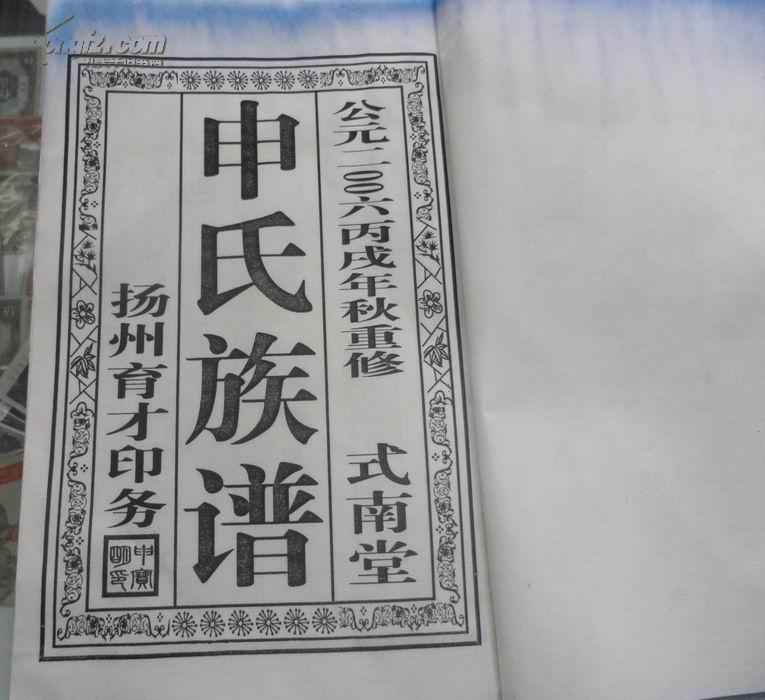 公元二〇〇六丙戌年秋重修 式南堂
申氏族谱
扬州育才印务